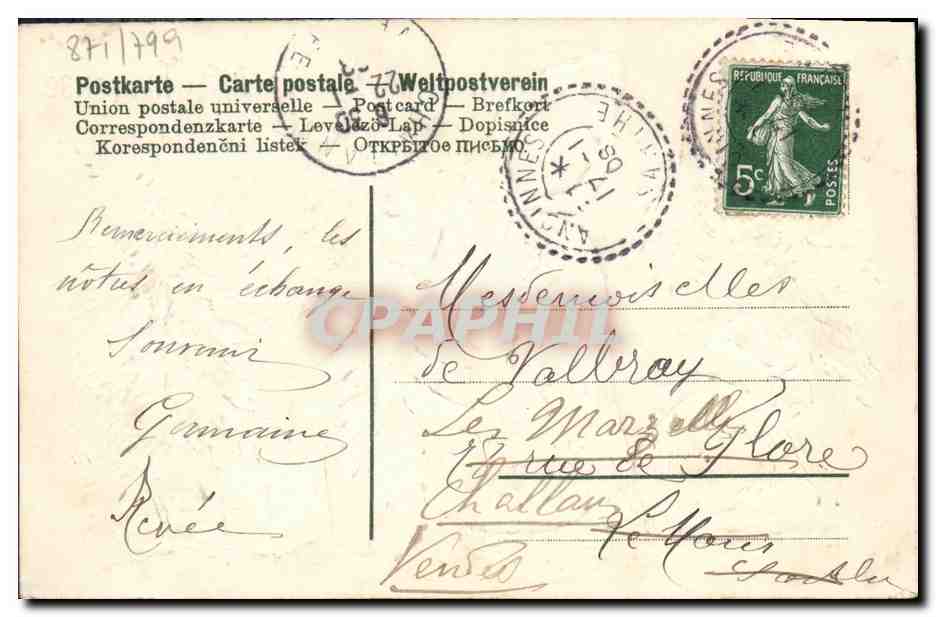 871/799
Postkarte — Carte postale — Weltpostverein
Union postale universelle — Postcard — Brefkort
Correspondenzkarte — Levelező-Lap — Dopisnice
Korespondenční listek — Открытое письмо
ANCINNES SARTHE
1 - 1
08
RÉPUBLIQUE FRANÇAISE
5c
POSTES
Remerciements, les
nôtres en échange
Souvenir
Germaine
Renée
Mesdemoiselles
de Vallbray
Les Marzelles
rue de Flore
Challans
Le Mans
Vendée
Sarthe
CPAPHIL